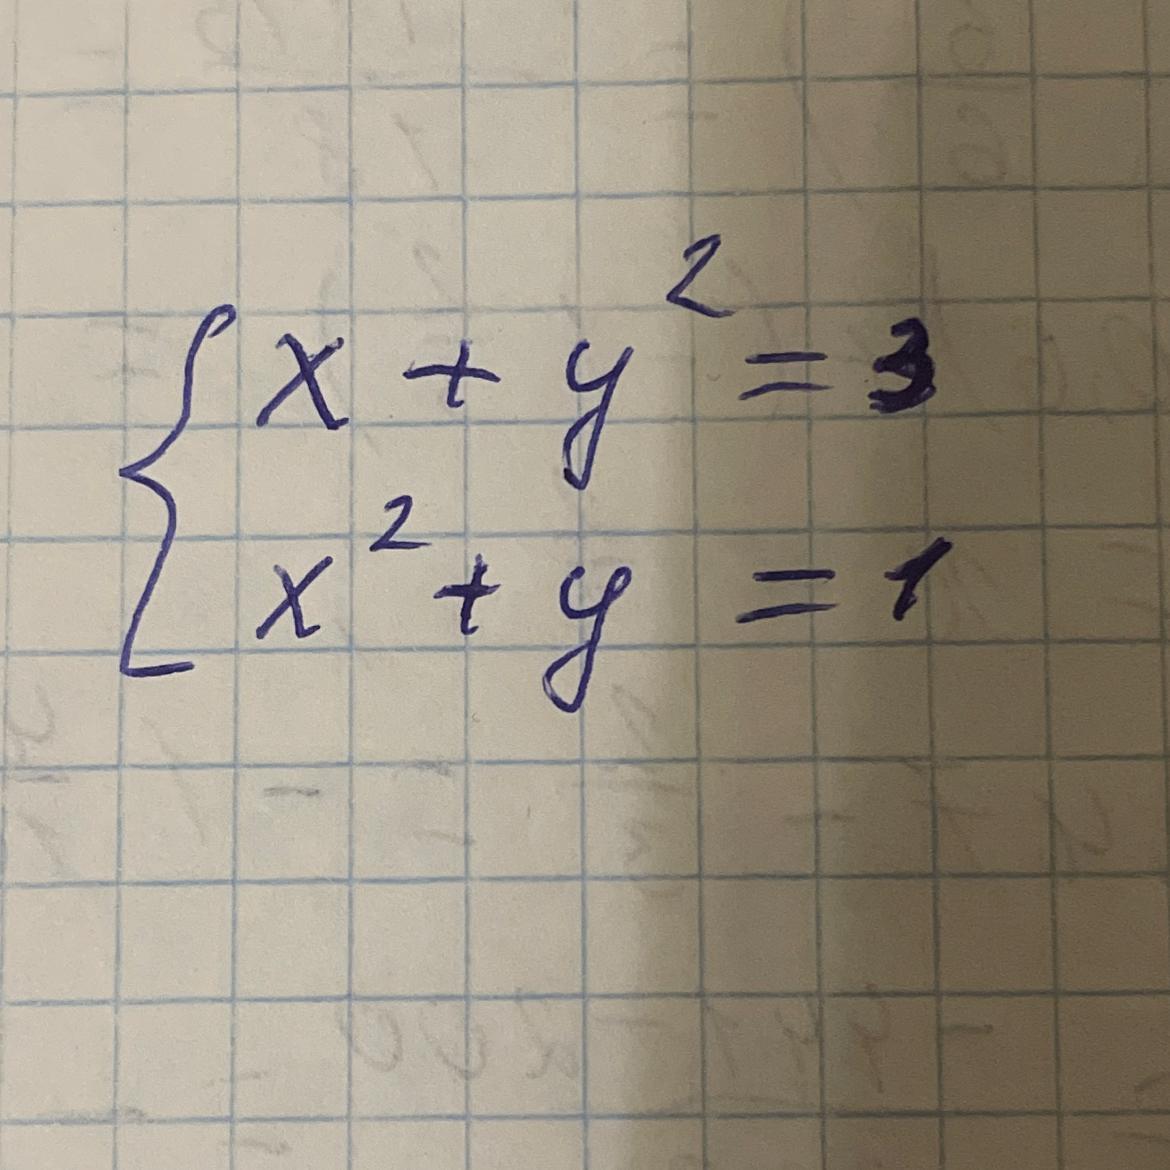 x + y² = 3
x² + y = 1